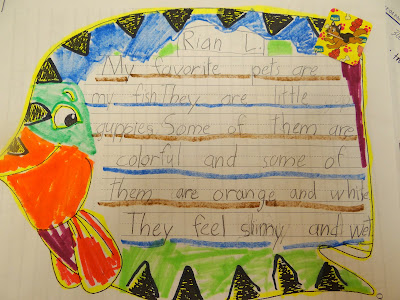 Rian L.
My favorite pets are
my fish They are little
guppies Some of them are
colorful and some of
them are orange and white
They feel slimy and wet